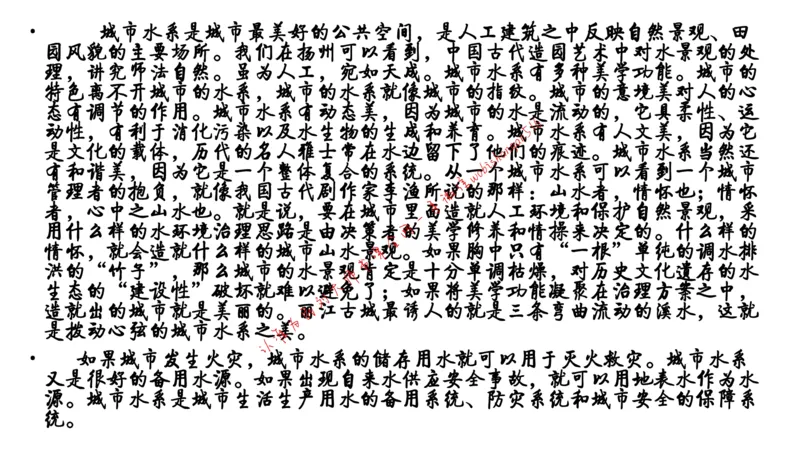 • 城市水系是城市最美好的公共空间，是人工建筑之中反映自然景观、田
园风貌的主要场所。我们在扬州可以看到，中国古代造园艺术中对水景观的处
理，讲究师法自然。虽为人工，宛如天成。城市水系有多种美学功能。城市的
特色离不开城市的水系，城市的水系就像城市的指纹。城市的意境美对人的心
态有调节的作用。城市水系有动态美，因为城市的水是流动的，它具柔性、运
动性，有利于消化污染以及水生物的生成和养育。城市水系有人文美，因为它
是文化的载体，历代的名人雅士常在水边留下了他们的痕迹。城市水系当然还
有和谐美，因为它是一个整体复合的系统。从一个城市水系可以看到一个城市
管理者的抱负，就像我国古代剧作家李渔所说的那样：山水者，情怀也；情怀
者，心中之山水也。就是说，要在城市里面造就人工环境和保护自然景观，采
用什么样的水环境治理思路是由决策者的美学修养和情操来决定的。什么样的
情怀，就会造就什么样的城市山水景观。如果胸中只有“一根”单纯的调水排
洪的“竹子”，那么城市的水景观肯定是十分单调枯燥，对历史文化遗存的水
生态的“建设性”破坏就难以避免了；如果将美学功能凝聚在治理方案之中，
造就出的城市就是美丽的。丽江古城最诱人的就是三条弯曲流动的溪水，这就
是拨动心弦的城市水系之美。
• 如果城市发生火灾，城市水系的储存用水就可以用于灭火救灾。城市水系
又是很好的备用水源。如果出现自来水供应安全事故，就可以用地表水作为水
源。城市水系是城市生活生产用水的备用系统、防灾系统和城市安全的保障系
统。